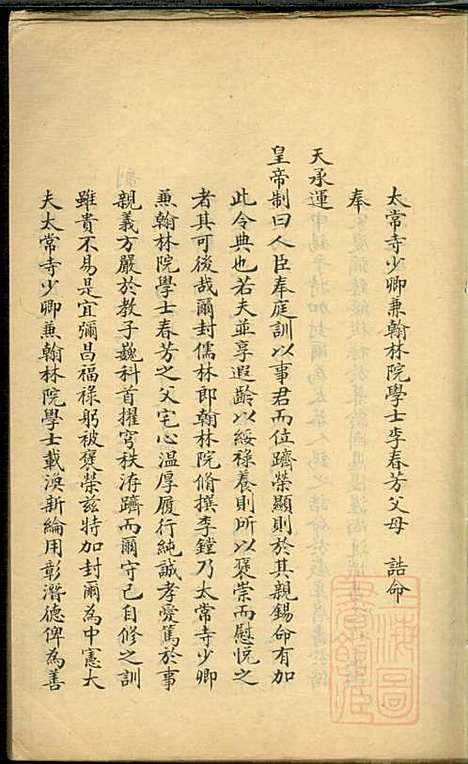 太常寺少卿兼翰林院學士李春芳父母　誥命
奉
天承運
皇帝制曰人臣奉庭訓以事君而位躋榮顯則於其親錫命有加
此令典也若夫並享遐齡以綏祿養則所以褒崇而慰悅之
者其可後哉爾封儒林郎翰林院脩撰李鏜乃太常寺少卿
兼翰林院學士春芳之父宅心溫厚履行純誠孝愛篤於事
親義方嚴於教子巍科首擢穹秩洊躋而爾守己自修之訓
雖貴不易是宜彌昌福祿躬被褒榮茲特加封爾為中憲大
夫太常寺少卿兼翰林院學士載渙新綸用彰潛德俾為善
上海圖書館藏